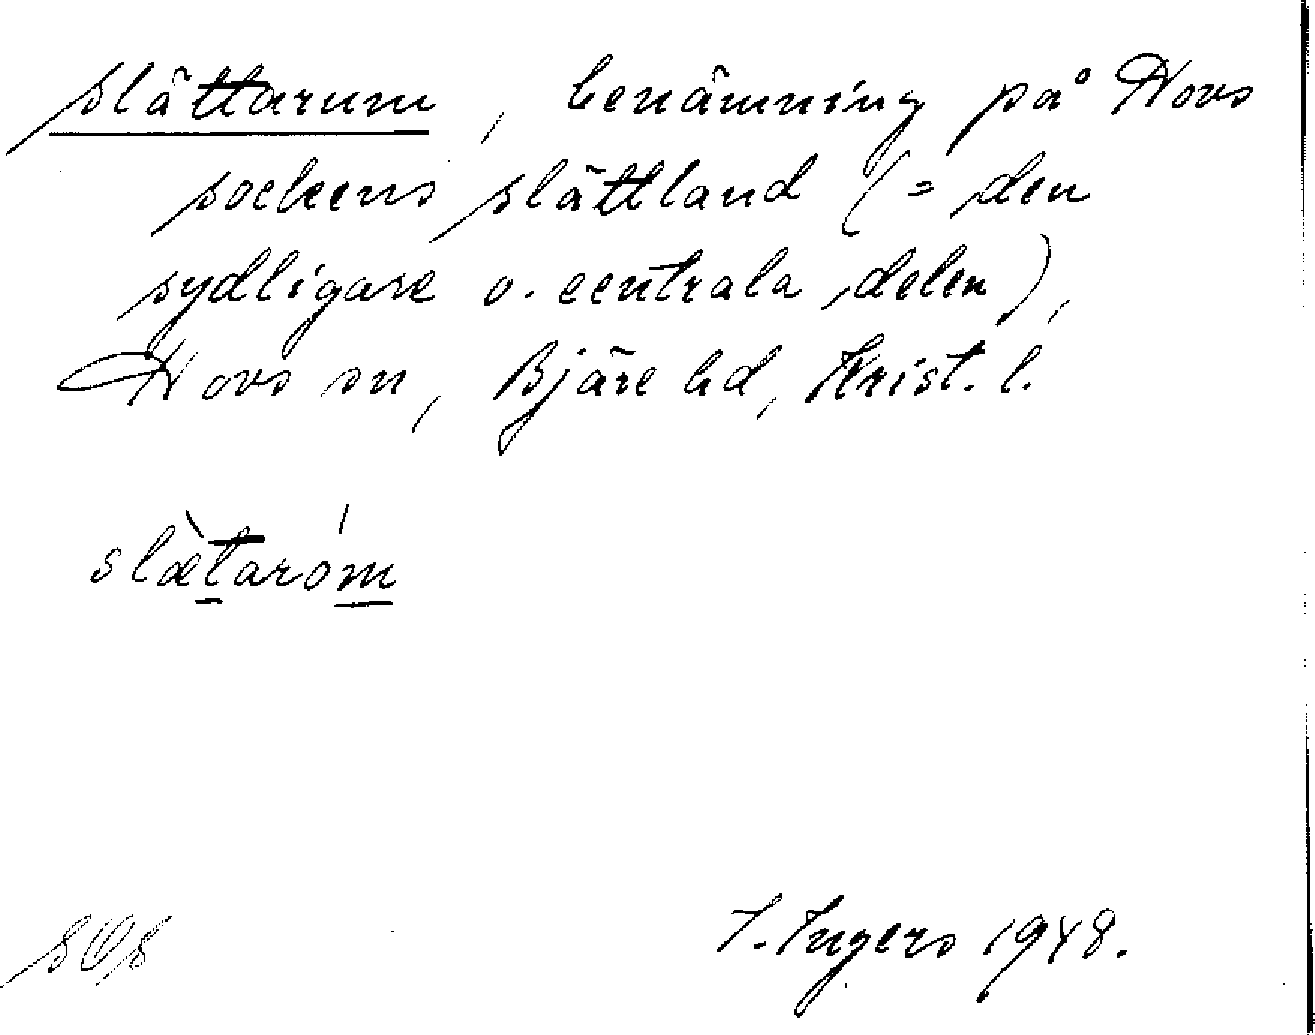 slättarum, benämning på Hovs
sockens slättland (= den
sydligare o. centrala delen),
Hovs sn, Bjäre hd, Krist. l.
slæ̀taróm
I. Ingers 1948.